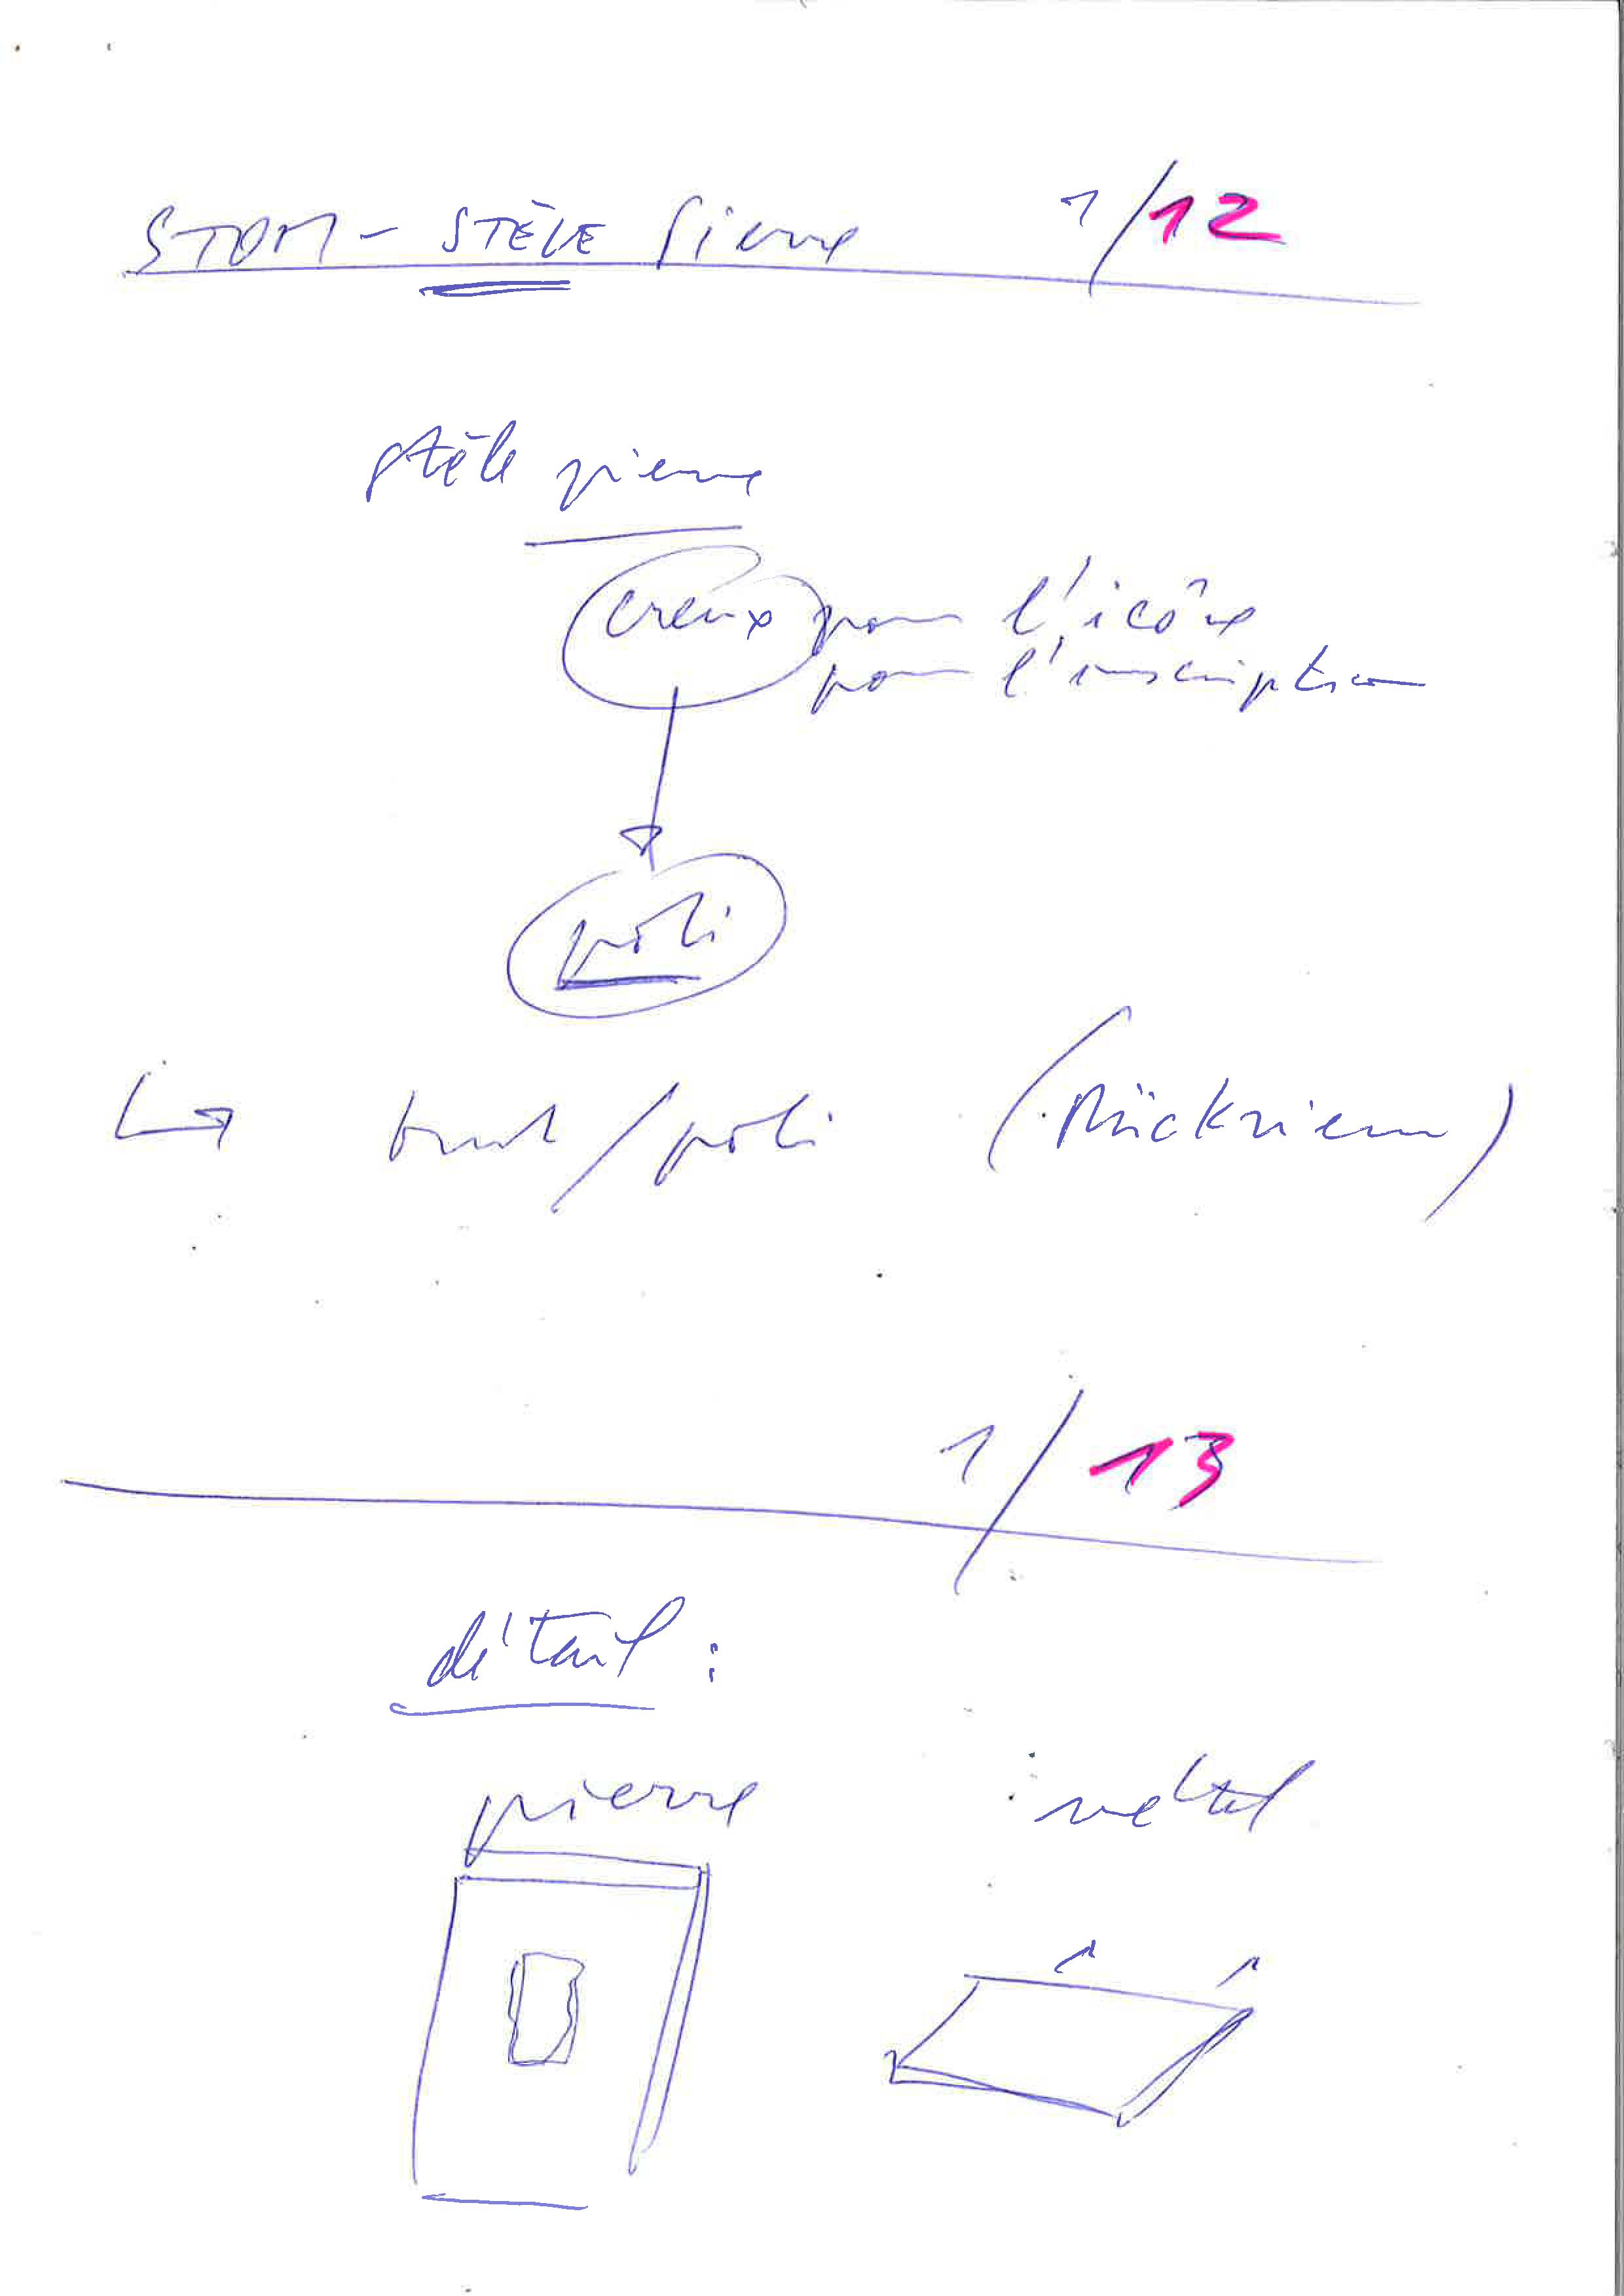 STOM - STÈLE Pierre 1/12
stèle pierre
creux pour l'icône
pour l'inscription
poli
↳ brut/poli (Rückriem)
1/13
détail :
pierre métal